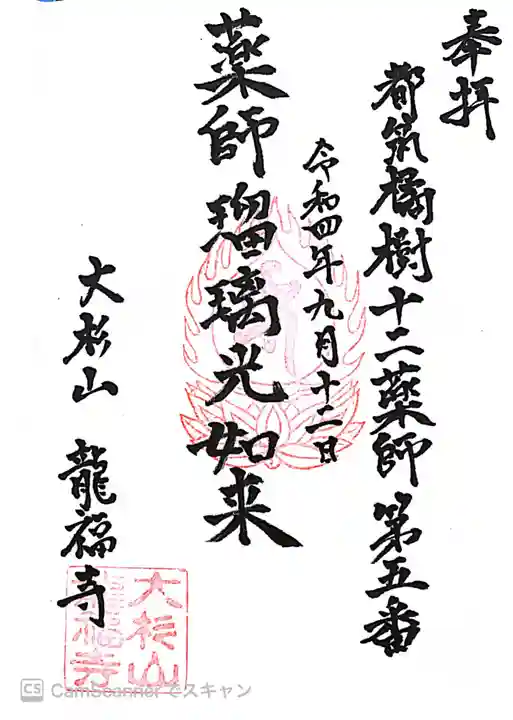 奉拝
都筑橘樹十二薬師第五番
令和四年九月十二日
薬師瑠璃光如来
大杉山 龍福寺
大杉山
龍福寺
CS CamScanner でスキャン